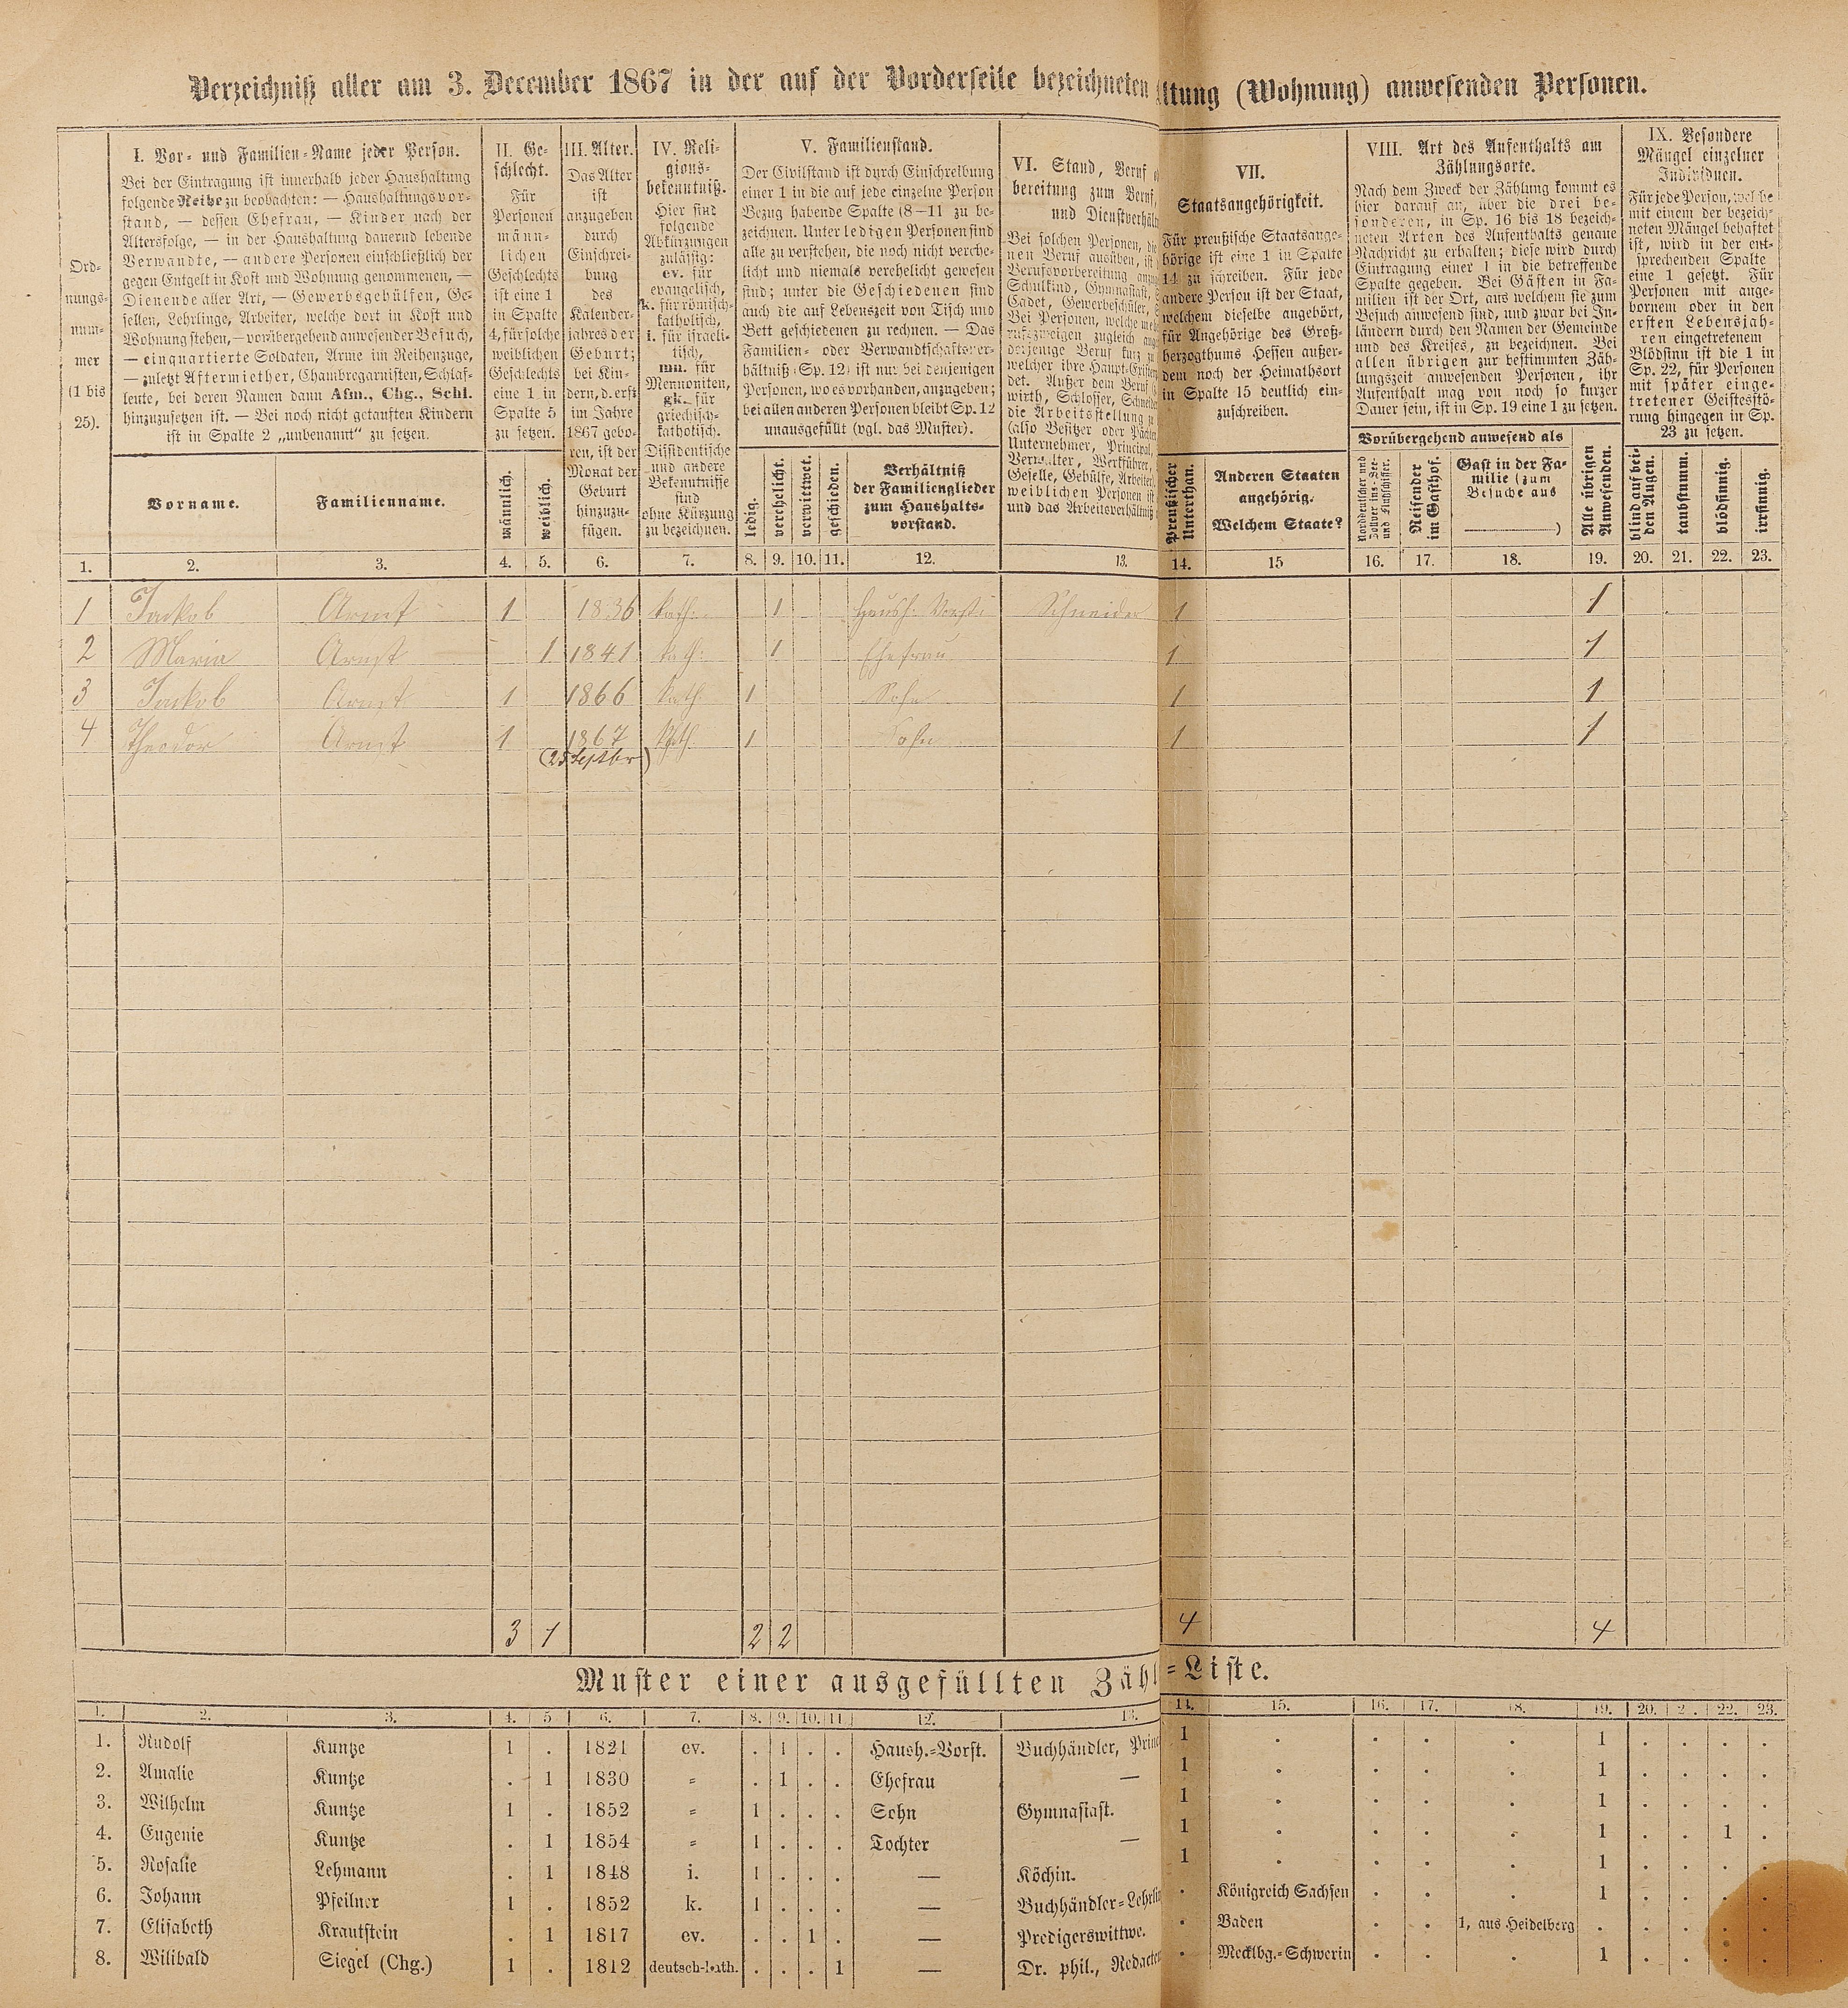 Verzeichniß aller am 3. December 1867 in der auf der Vorderseite bezeichneten ltung (Wohnung) anwesenden Personen.
Ord-
nungs-
num-
mer
(1 bis
25).
I. Vor- und Familien-Name jeder Person.
Bei der Eintragung ist innerhalb jeder Haushaltung
folgende Reihe zu beobachten: — Haushaltungsvor-
stand, — dessen Ehefrau, — Kinder nach der
Altersfolge, — in der Haushaltung dauernd lebende
Verwandte, — andere Personen einschließlich der
gegen Entgelt in Kost und Wohnung genommenen, —
Dienende aller Art, — Gewerbsgehülfen, Ge-
sellen, Lehrlinge, Arbeiter, welche dort in Kost und
Wohnung stehen, — vorübergehend anwesender Besuch,
— einquartierte Soldaten, Arme im Reihenzuge,
— zuletzt Aftermiether, Chambregarnisten, Schlaf-
leute, bei deren Namen dann Afm., Chg., Schl.
hinzuzusetzen ist. — Bei noch nicht getauften Kindern
ist in Spalte 2 „unbenannt" zu setzen.
Vorname.
Familienname.
II. Ge-
schlecht.
Für
Personen
männ-
lichen
Geschlechts
ist eine 1
in Spalte
4, für solche
weiblichen
Geschlechts
eine 1 in
Spalte 5
zu setzen.
männlich.
weiblich.
III. Alter.
Das Alter
ist
anzugeben
durch
Einschrei-
bung
des
Kalender-
jahres der
Geburt;
bei Kin-
dern, d. erst
im Jahre
1867 gebo-
ren, ist der
Monat der
Geburt
hinzuzu-
fügen.
IV. Reli-
gions-
bekenntniß.
Hier sind
folgende
Abkürzungen
zulässig:
ev. für
evangelisch,
k. für römisch-
katholisch,
i. für israeli-
tisch,
mn. für
Mennoniten,
gk. für
griechisch-
katholisch.
Dissidentische
und andere
Bekenntnisse
sind
ohne Kürzung
zu bezeichnen.
V. Familienstand.
Der Civilstand ist durch Einschreibung
einer 1 in die auf jede einzelne Person
Bezug habende Spalte (8—11) zu be-
zeichnen. Unter ledigen Personen sind
alle zu verstehen, die noch nicht verehe-
licht und niemals verehelicht gewesen
sind; unter die Geschiedenen sind
auch die auf Lebenszeit von Tisch und
Bett geschiedenen zu rechnen. — Das
Familien- oder Verwandtschaftsver-
hältniß (Sp. 12) ist nur bei denjenigen
Personen, wo es vorhanden, anzugeben;
bei allen anderen Personen bleibt Sp. 12
unausgefüllt (vgl. das Muster).
ledig.
verehelicht.
verwittwet.
geschieden.
Verhältniß
der Familienglieder
zum Haushalts-
vorstand.
VI. Stand, Beruf
bereitung zum Beruf,
und Dienstverhält
Bei solchen Personen, die
nen Beruf ausüben, ist
Berufsvorbereitung
Schulkind, Gymnasiast,
Cadet, Gewerbeschüler,
Bei Personen, welche
rufszweigen zugleich
derjenige Beruf kurz zu
welcher ihre Haupt-
det. Außer dem Beruf
wirth, Schlosser, Schneider
die Arbeitsstellung
(also Besitzer oder Pächter,
Unternehmer, Principal,
Verwalter, Werkführer,
Geselle, Gehülfe, Arbeiter).
weiblichen Personen ist
und das Arbeitsverhältniß
VII.
Staatsangehörigkeit.
Für preußische Staatsange-
hörige ist eine 1 in Spalte
14 zu schreiben. Für jede
andere Person ist der Staat,
welchem dieselbe angehört,
für Angehörige des Groß-
herzogthums Hessen außer-
dem noch der Heimathsort
in Spalte 15 deutlich ein-
zuschreiben.
Preußischer
Unterthan.
Anderen Staaten
angehörig.
Welchem Staate?
VIII. Art des Aufenthalts am
Zählungsorte.
Nach dem Zweck der Zählung kommt es
hier darauf an, über die drei be-
sonderen, in Sp. 16 bis 18 bezeich-
neten Arten des Aufenthalts genaue
Nachricht zu erhalten; diese wird durch
Eintragung einer 1 in die betreffende
Spalte gegeben. Bei Gästen in Fa-
milien ist der Ort, aus welchem sie zum
Besuch anwesend sind, und zwar bei In-
ländern durch den Namen der Gemeinde
und des Kreises, zu bezeichnen. Bei
allen übrigen zur bestimmten Zäh-
lungszeit anwesenden Personen, ihr
Aufenthalt mag von noch so kurzer
Dauer sein, ist in Sp. 19 eine 1 zu setzen.
Vorübergehend anwesend als
Norddeutscher und
Zollver ins-See-
und Flußschiffer.
Reisender
im Gasthof.
Gast in der Fa-
milie (zum
Besuche aus
)
Alle übrigen
Anwesenden.
IX. Besondere
Mängel einzelner
Individuen.
Für jede Person, welche
mit einem der bezeich-
neten Mängel behaftet
ist, wird in der ent-
sprechenden Spalte
eine 1 gesetzt. Für
Personen mit ange-
bornem oder in den
ersten Lebensjah-
ren eingetretenem
Blödsinn ist die 1 in
Sp. 22, für Personen
mit später einge-
tretener Geistesstö-
rung hingegen in Sp.
23 zu setzen.
blind auf bei-
den Augen.
taubstumm.
blödsinnig.
irrsinnig.
1. 2. 3. 4. 5. 6. 7. 8. 9. 10. 11. 12. 13. 14. 15 16. 17. 18. 19. 20. 21. 22. 23.
1 Jackob Arnst 1 1836 kath: 1 Haush: Vorst: Schneider 1 1
2 Maria Arnst 1 1841 kath: 1 Ehefrau 1 1
3 Jackob Arnst 1 1866 kath 1 Sohn 1 1
4 Theodor Arnst 1 1867 kath. 1 Sohn 1 1
(25 Septbr)
3 1 2 2 4 4
Muster einer ausgefüllten Zähl=Liste.
1. 2. 3. 4. 5 6. 7. 8. 9. 10. 11 12. 13. 14. 15. 16. 17. 18. 19. 20. 2 . 22. 23.
1. Rudolf Kuntze 1 . 1821 ev. . 1 . . Haush.=Vorst. Buchhändler, Prin 1 . . . . 1 . . . .
2. Amalie Kuntze . 1 1830 = . 1 . . Ehefrau — 1 . . . . 1 . . . .
3. Wilhelm Kuntze 1 . 1852 = 1 . . . Sohn Gymnasiast. 1 . . . . 1 . . . .
4. Eugenie Kuntze . 1 1854 = 1 . . . Tochter — 1 . . . . 1 . . 1 .
5. Rosalie Lehmann . 1 1848 i. 1 . . . — Köchin. 1 . . . . 1 . . . .
6. Johann Pfeilner 1 . 1852 k. 1 . . . — Buchhändler=Lehrlin . Königreich Sachsen . . . 1 . . . .
7. Elisabeth Krautstein . 1 1817 ev. . . 1 . — Predigerswittwe. . Baden . . 1, aus Heidelberg . . . . .
8. Wilibald Siegel (Chg.) 1 . 1812 deutsch-kath. . . . 1 — Dr. phil., Redacteu . Mecklbg.=Schwerin . . . 1 . . . .